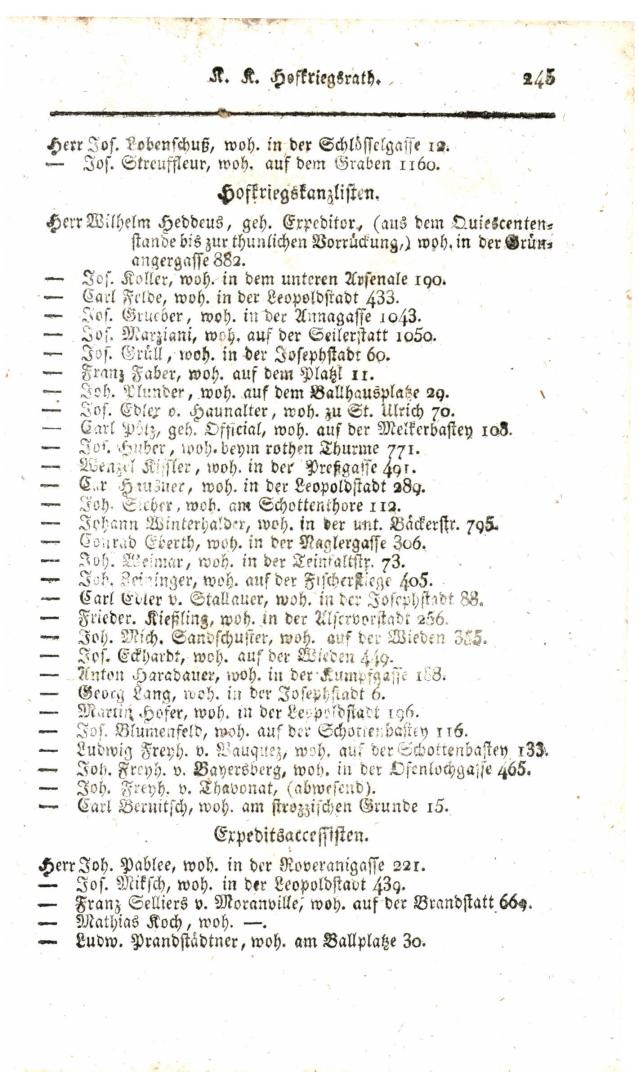 K. K. Hofkriegsrath. 245
Herr Jos. Lobenschuß, woh. in der Schlösselgasse 12.
— Jos. Streuffleur, woh. auf dem Graben 1160.
Hofkriegskanzlisten.
Herr Wilhelm Heddeus, geh. Expeditor, (aus dem Quiescenten-
stande bis zur thunlichen Vorrückung,) woh. in der Grün-
angergasse 882.
— Jos. Koller, woh. in dem unteren Arsenale 190.
— Carl Felde, woh. in der Leopoldstadt 433.
— Jos. Grueber, woh. in der Annagasse 1043.
— Jos. Marziani, woh. auf der Seilerstatt 1050.
— Jos. Grüll, woh. in der Josephstadt 60.
— Franz Faber, woh. auf dem Platzl 11.
— Joh. Plunder, woh. auf dem Ballhausplatze 29.
— Jos. Edler v. Haunalter, woh. zu St. Ulrich 70.
— Carl Pötz, geh. Official, woh. auf der Melkerbastey 108.
— Jos. Huber, woh. beym rothen Thurme 771.
— Wenzel Kissler, woh. in der Preßgasse 491.
— Car Hauzner, woh. in der Leopoldstadt 289.
— Joh. Sicher, woh. am Schottenthore 112.
— Johann Winterhalder, woh. in der unt. Bäckerstr. 795.
— Conrad Eberth, woh. in der Naglergasse 306.
— Joh. Weimar, woh. in der Teinfaltstr. 73.
— Joh. woh. auf der Fischerstiege 405.
— Carl Edler v. Stallauer, woh. in der Josephstadt 88.
— Frieder. Kießling, woh. in der Alservorstadt 256.
— Joh. Mich. Sandschuster, woh. auf der Wieden 335.
— Jos. Eckhardt, woh. auf der Wieden 449.
— Anton Haradauer, woh. in der Kumpfgasse 188.
— Georg Lang, woh. in der Josephstadt 6.
— Martin Hofer, woh. in der Leopoldstadt 196.
— Jos. Blumenfeld, woh. auf der Schottenbastey 116.
— Ludwig Freyh. v. Vauquez, woh. auf der Schottenbastey 133.
— Joh. Freyh. v. Bayersberg, woh. in der Ofenlochgasse 465.
— Joh. Freyh. v. Thavonat, (abwesend).
— Carl Bernitsch, woh. am strozzischen Grunde 15.
Expeditsaccessisten.
Herr Joh. Pablee, woh. in der Roveranigasse 221.
— Jos. Miksch, woh. in der Leopoldstadt 439.
— Franz Selliers v. Moranville, woh. auf der Brandstatt 669.
— Mathias Koch, woh. —.
— Ludw. Prandstädtner, woh. am Ballplatze 30.